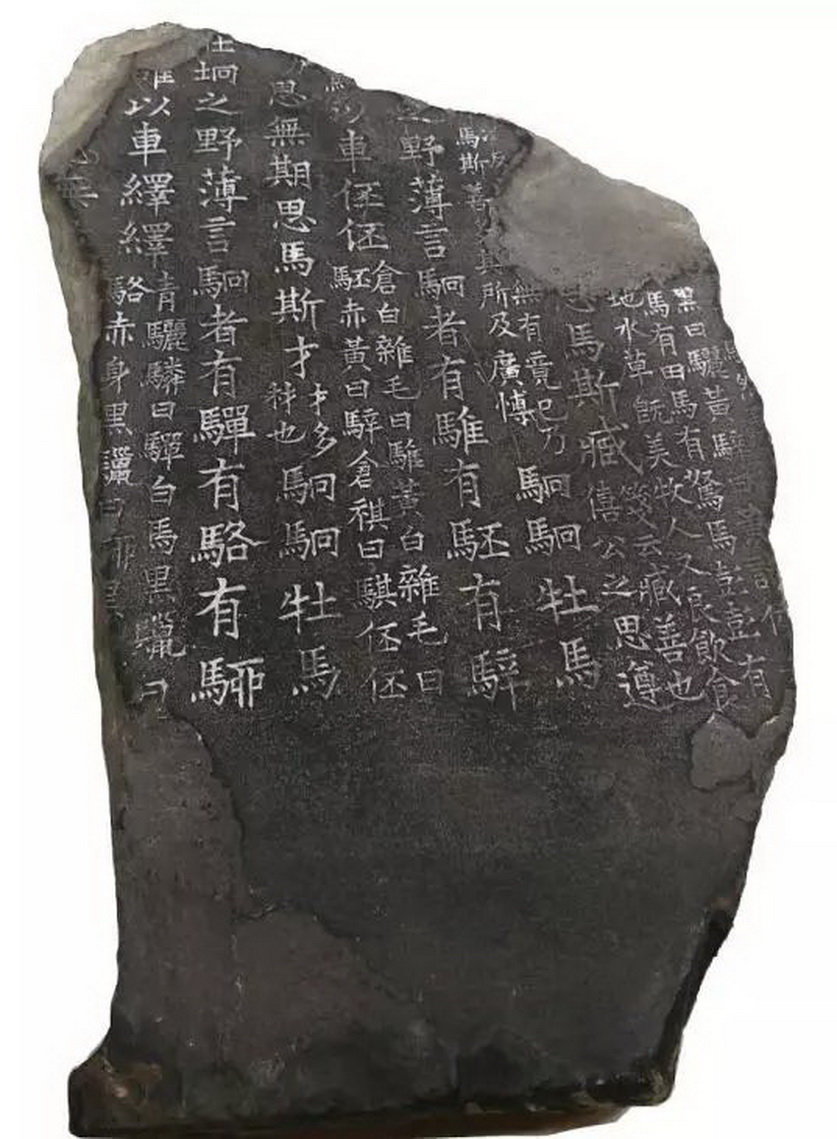 黑曰驪黃騂曰黃諸
馬有田馬有駑馬彭彭有
地水草既美牧人又良飲食
思馬斯臧
箋云臧善也
僖公之思遵
無有竟已乃
馬斯善多其所及廣博
駉駉牡馬
之野薄言駉者有騅有駓有騂
以車伾伾
倉白雜毛曰騅黃白雜毛曰
駓赤黃曰騂倉祺曰騏伾伾
思無期思馬斯才
才多
材也
駉駉牡馬
在坰之野薄言駉者有驒有駱有駵
雒以車繹繹
青驪驎曰驒白馬黑鬣曰
駱赤身黑鬣曰駵黑
無